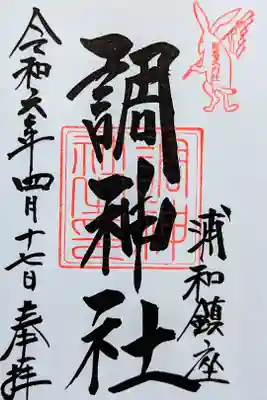 浦和鎮座
調神社
令和六年四月十七日 奉拝